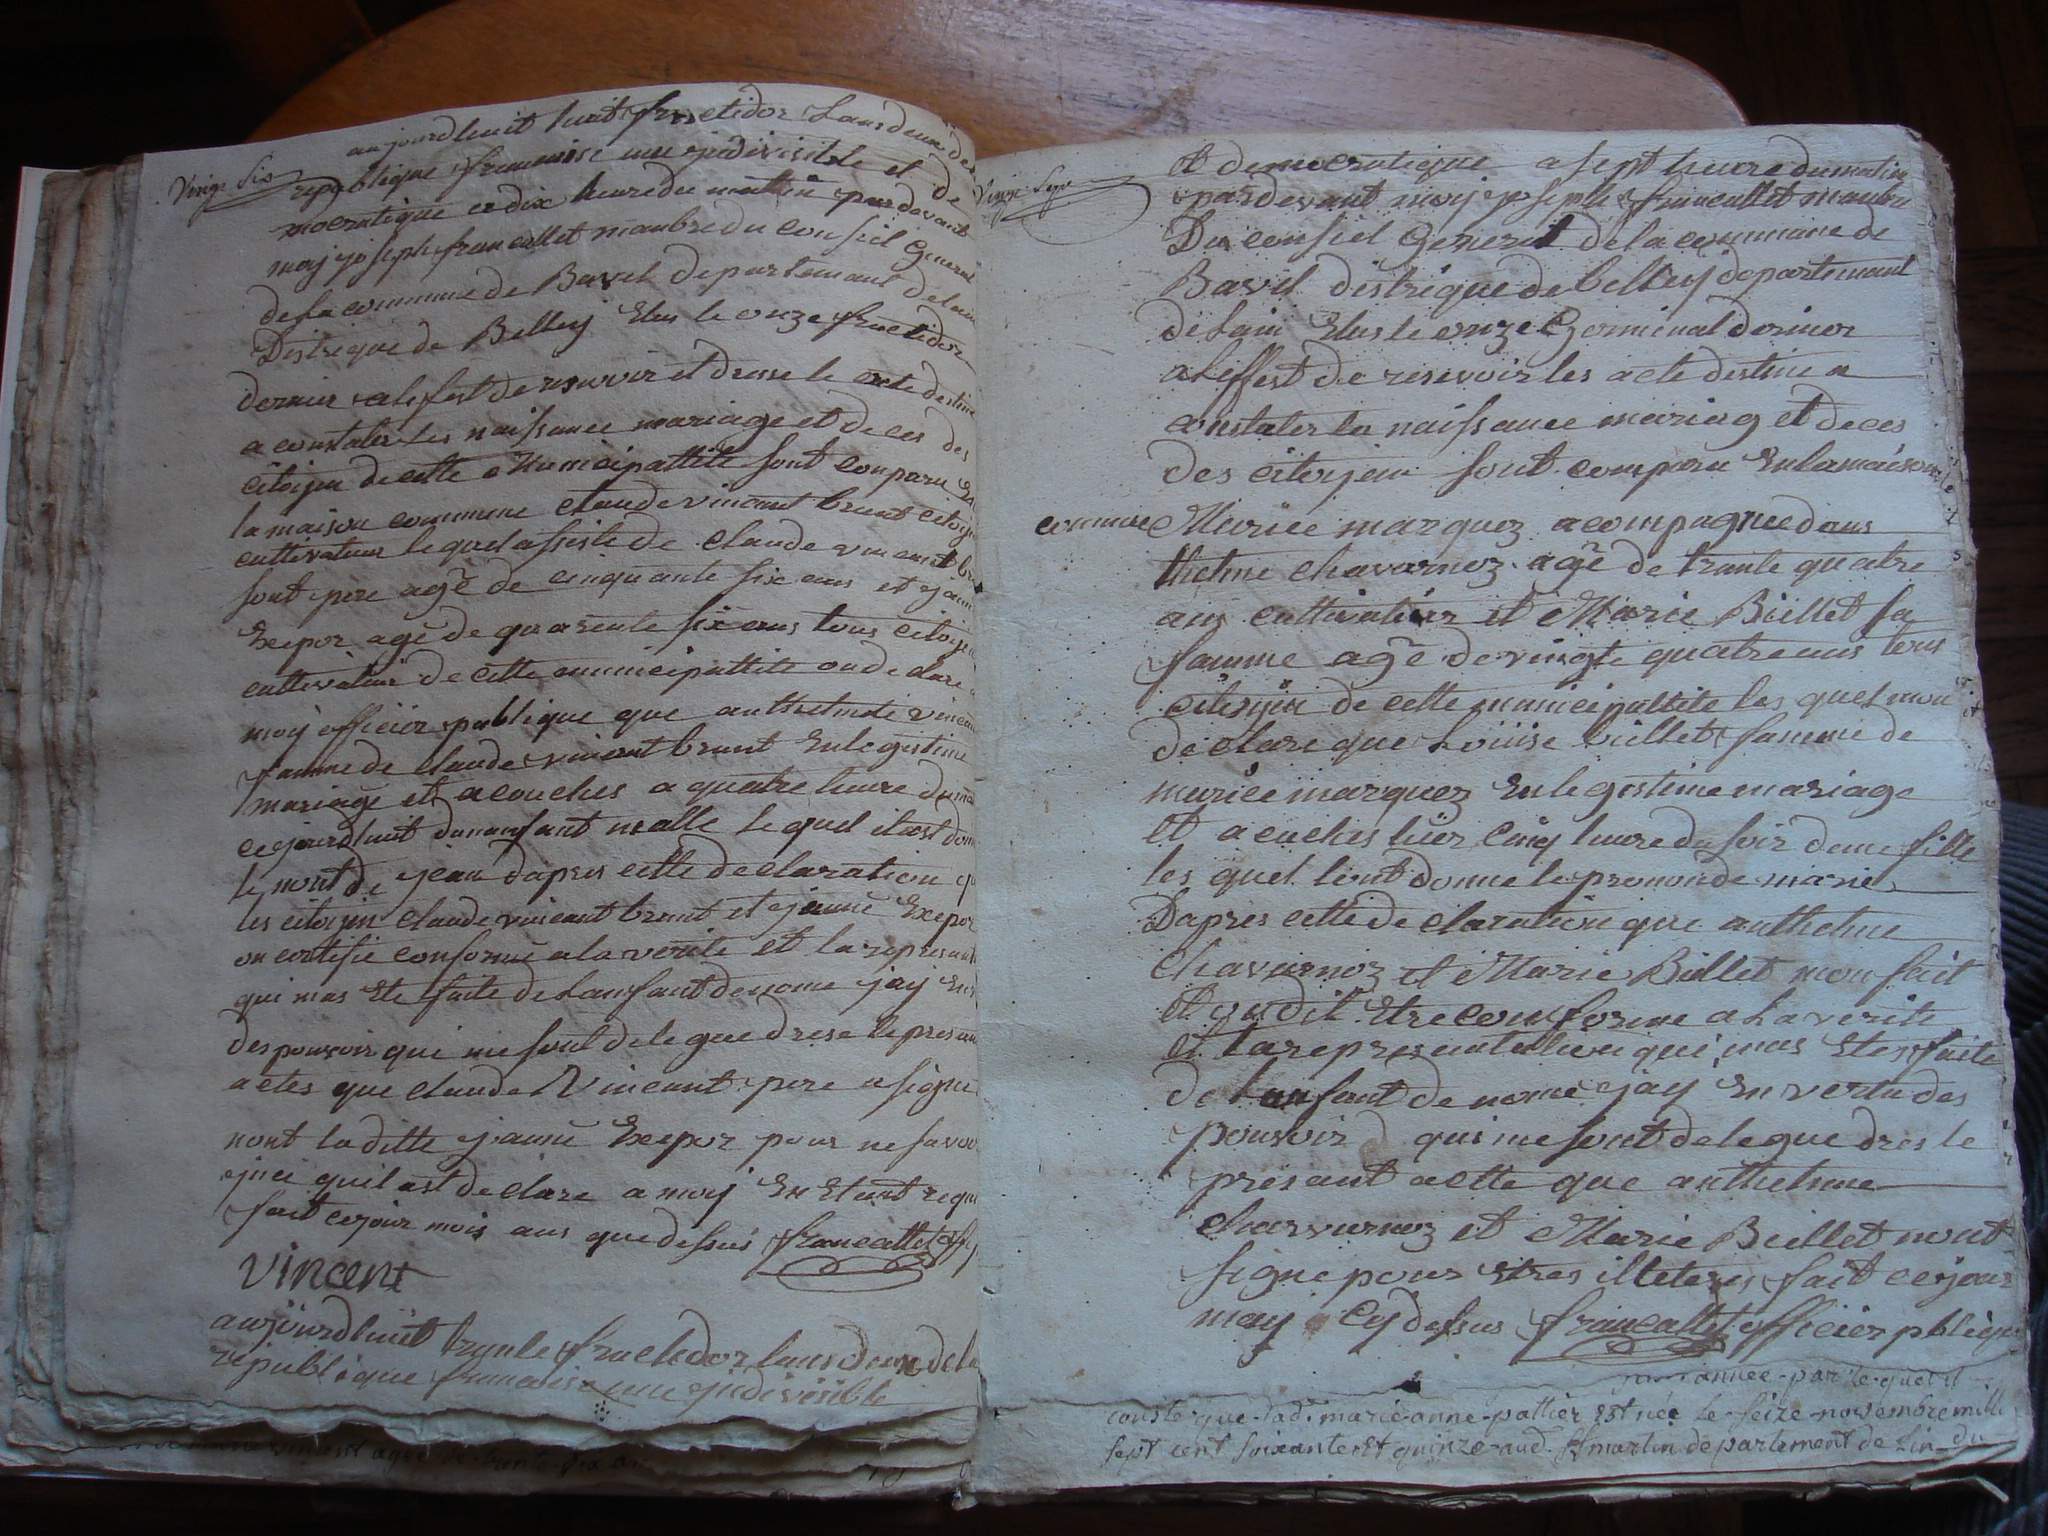 Vingt Six
aujourdhuit huit fructidor Lans deux de
republique francaise une indivisible et de
mocratique a dix heure du mattin pardevant
moy joseph francallet manbre du conseil General
de la commune de Bavel departemant de lain
Distrique de Belley Elus le onze fructidor
dernier aleffest de resevoir et dresse le acte destine
a constater les naissance mariage et de ces des
citoijen de cette Municipallite sont conparu En
la maison commune claude vincant brunt citoijen
cultivateur le quel assiste de claude vincant br
sont pere agê de cinquante six ans et janne
Exepor agê de quarente six ans tous citoije
cultivateur de cette municipallite on declare a
moy officier publique que anthelmete vincan
famme de claude vincant brunt En legistime
mariage et acouches a quatre heure du ma
cejourdhuit dun anfant malle le quel il ast donn
le nont de jean dapres cette declaration qu
les citoijen claude vincant brunt et janne Exepor
on certifie conforme a la verite et la represanta
qui mas Ete faite de Lanfant denome jay En v
des pouvoir qui me sont delegue drese le presan
actes que claude Vincant pere a signe
nont la ditte janne Exepor pour ne savoi
ejnci quil ast declare a moy En Etant requi
fait cejour mois ans que dessus francallet off
Vincent
aujourdhuit trante fructidor lans deux de la
republique francaise une jndivisible
Vingt Sept
et democratique a sept heure du matin
pardevant moy joseph francallet manbre
Du conseil General de la commune de
Bavel distrique de belley departemant
de Lain Elus le onze Germinal dernier
a Leffest de resevoir les acte destine a
constater la naissance mariag et deces
des citoyen sont comparu En la maison
commune Muriee marquez acompagnee dans
thelme chavarnoz agê de trante quatre
ans cultivateur et Marie Billet sa
famme agê de vingte quatre ans tous
citoyen de cette municipallite les quel mon
declare que Louise billet famme de
muriee marquez En legistime mariage
et acuches hier cinq heure du soir dune fille
les quel lont donne le prenon de marie
Dapres cette declaration que anthelme
Chavarnoz et Marie Billet mon fait
et on dit Etre comforme a La verite
et la represantation qui mas Ete faite
de Lanfant denome jay En vertu des
pouvoir qui me sont delegue dres le
presant acte que anthelme
Charvarnoz et Marie Billet nont
signe pour Etres illeteres fait cejour
may cy dessus francallet officier publique
annee par le quel il
conste que lad. marie anne pallier Est née le seize novembre mille
sept cent soixante Et quinze aud. St martin departement de Lin du